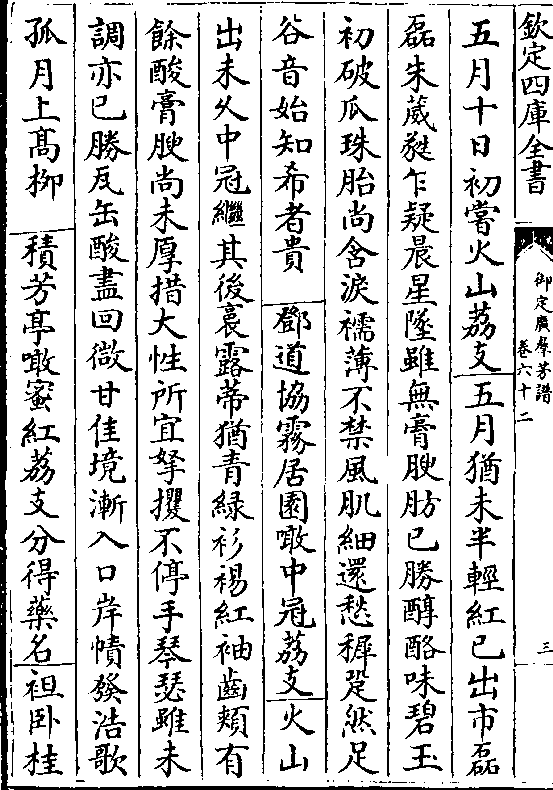 欽定四庫全書
御定廣羣芳譜
卷六十二
三
五月十日初嘗火山荔支 五月猶未半輕紅已出市磊
磊朱葳蕤乍疑晨星墜雖無膏腴肪已勝醇酪味碧玉
初破瓜珠胎尚含淚襦薄不禁風肌細還愁稺跫然足
谷音始知希者貴 鄧道協霧居園噉中冠荔支 火山
出未久中冠繼其後裛露蒂猶青緑衫裼紅袖齒頰有
餘酸膏腴尚未厚措大性所宜拏攫不停手琴瑟雖未
調亦已勝瓦缶酸盡回微甘佳境漸入口岸幘發浩歌
孤月上髙柳 積芳亭噉蜜紅荔支分得藥名 袒卧桂